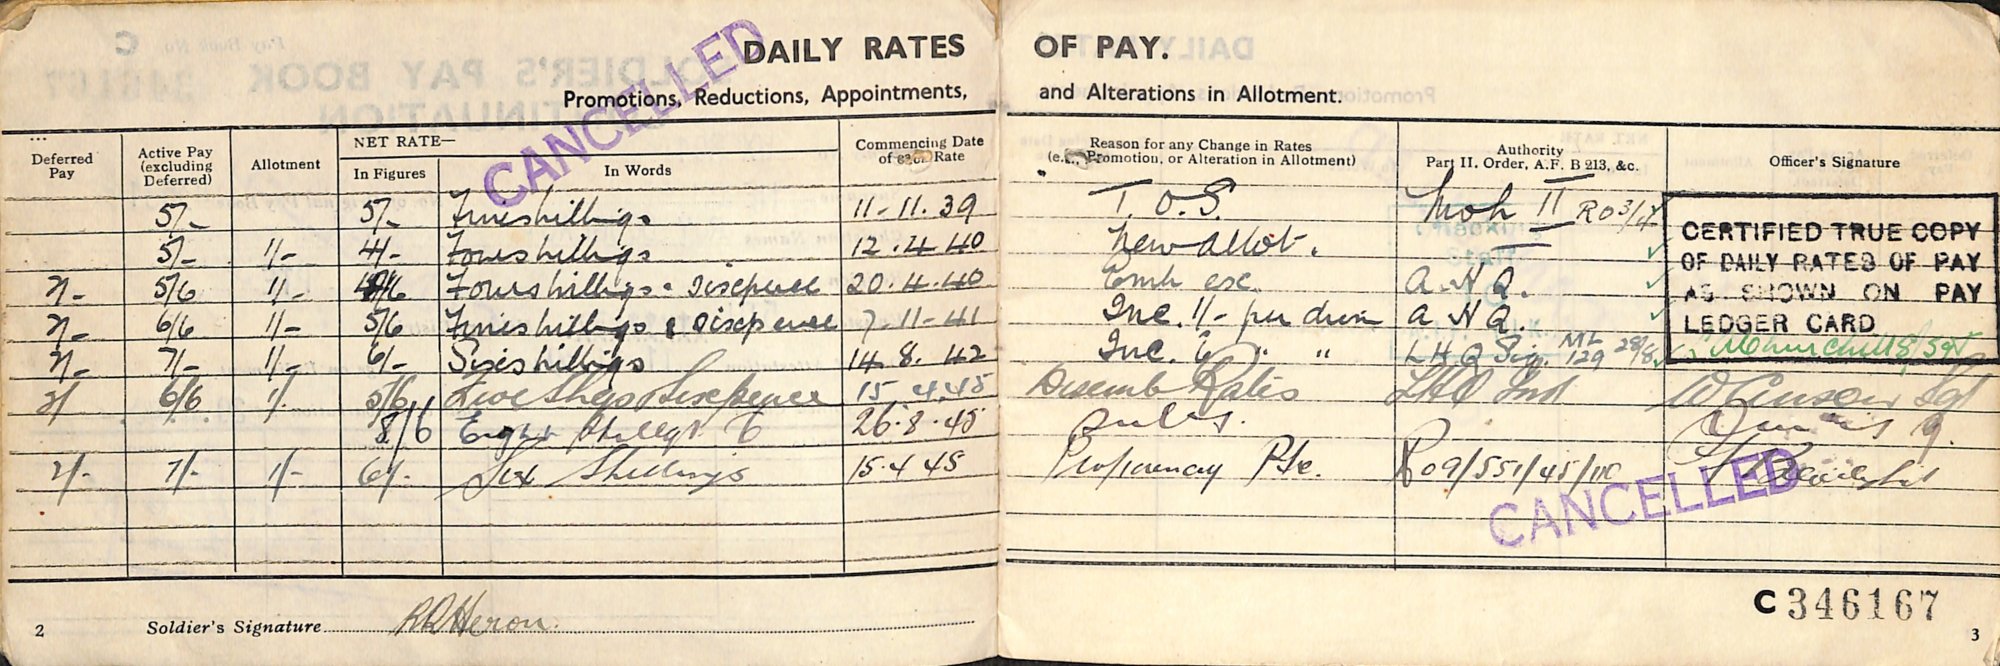 DAILY RATES OF PAY.
Promotions, Reductions, Appointments, and Alterations in Allotment.
CANCELLED
Deferred Pay
Active Pay (excluding Deferred)
Allotment
NET RATE—
In Figures
In Words
Commencing Date of each Rate
Reason for any Change in Rates (e.g., Promotion, or Alteration in Allotment)
Authority Part II. Order, A.F. B 213, &c.
Officer's Signature
5/- 5/- Five shillings 11-11.39 T.O.S. II RO 3/
5/- 1/- 4/- Four shillings 12.4.40 New allot.
2/- 5/6 1/- 4/6 Four shillings & sixpence 20.4.40 Emb A.H.Q.
2/- 6/6 1/- 5/6 Five shillings & sixpence 7-11-41 Inc. 1/- per diem A H Q.
2/- 7/- 1/- 6/- Six shillings 14.8.42 Inc. 6 " " LHQ Sig. ML 129 28/8
2/ 6/6 1/- 5/6 Five Shgs Sixpence 15 4.45 Disemb Rates LHQ Ind
8/6 Eight 6 26.8.45
2/- 7/- 1/- 6/- Six Shillings 15.4.45 Proficiency Pte. RO9/551/45/
CERTIFIED TRUE COPY
OF DAILY RATES OF PAY
AS SHOWN ON PAY
LEDGER CARD
CANCELLED
C346167
2 Soldier's Signature RRHeron.
3